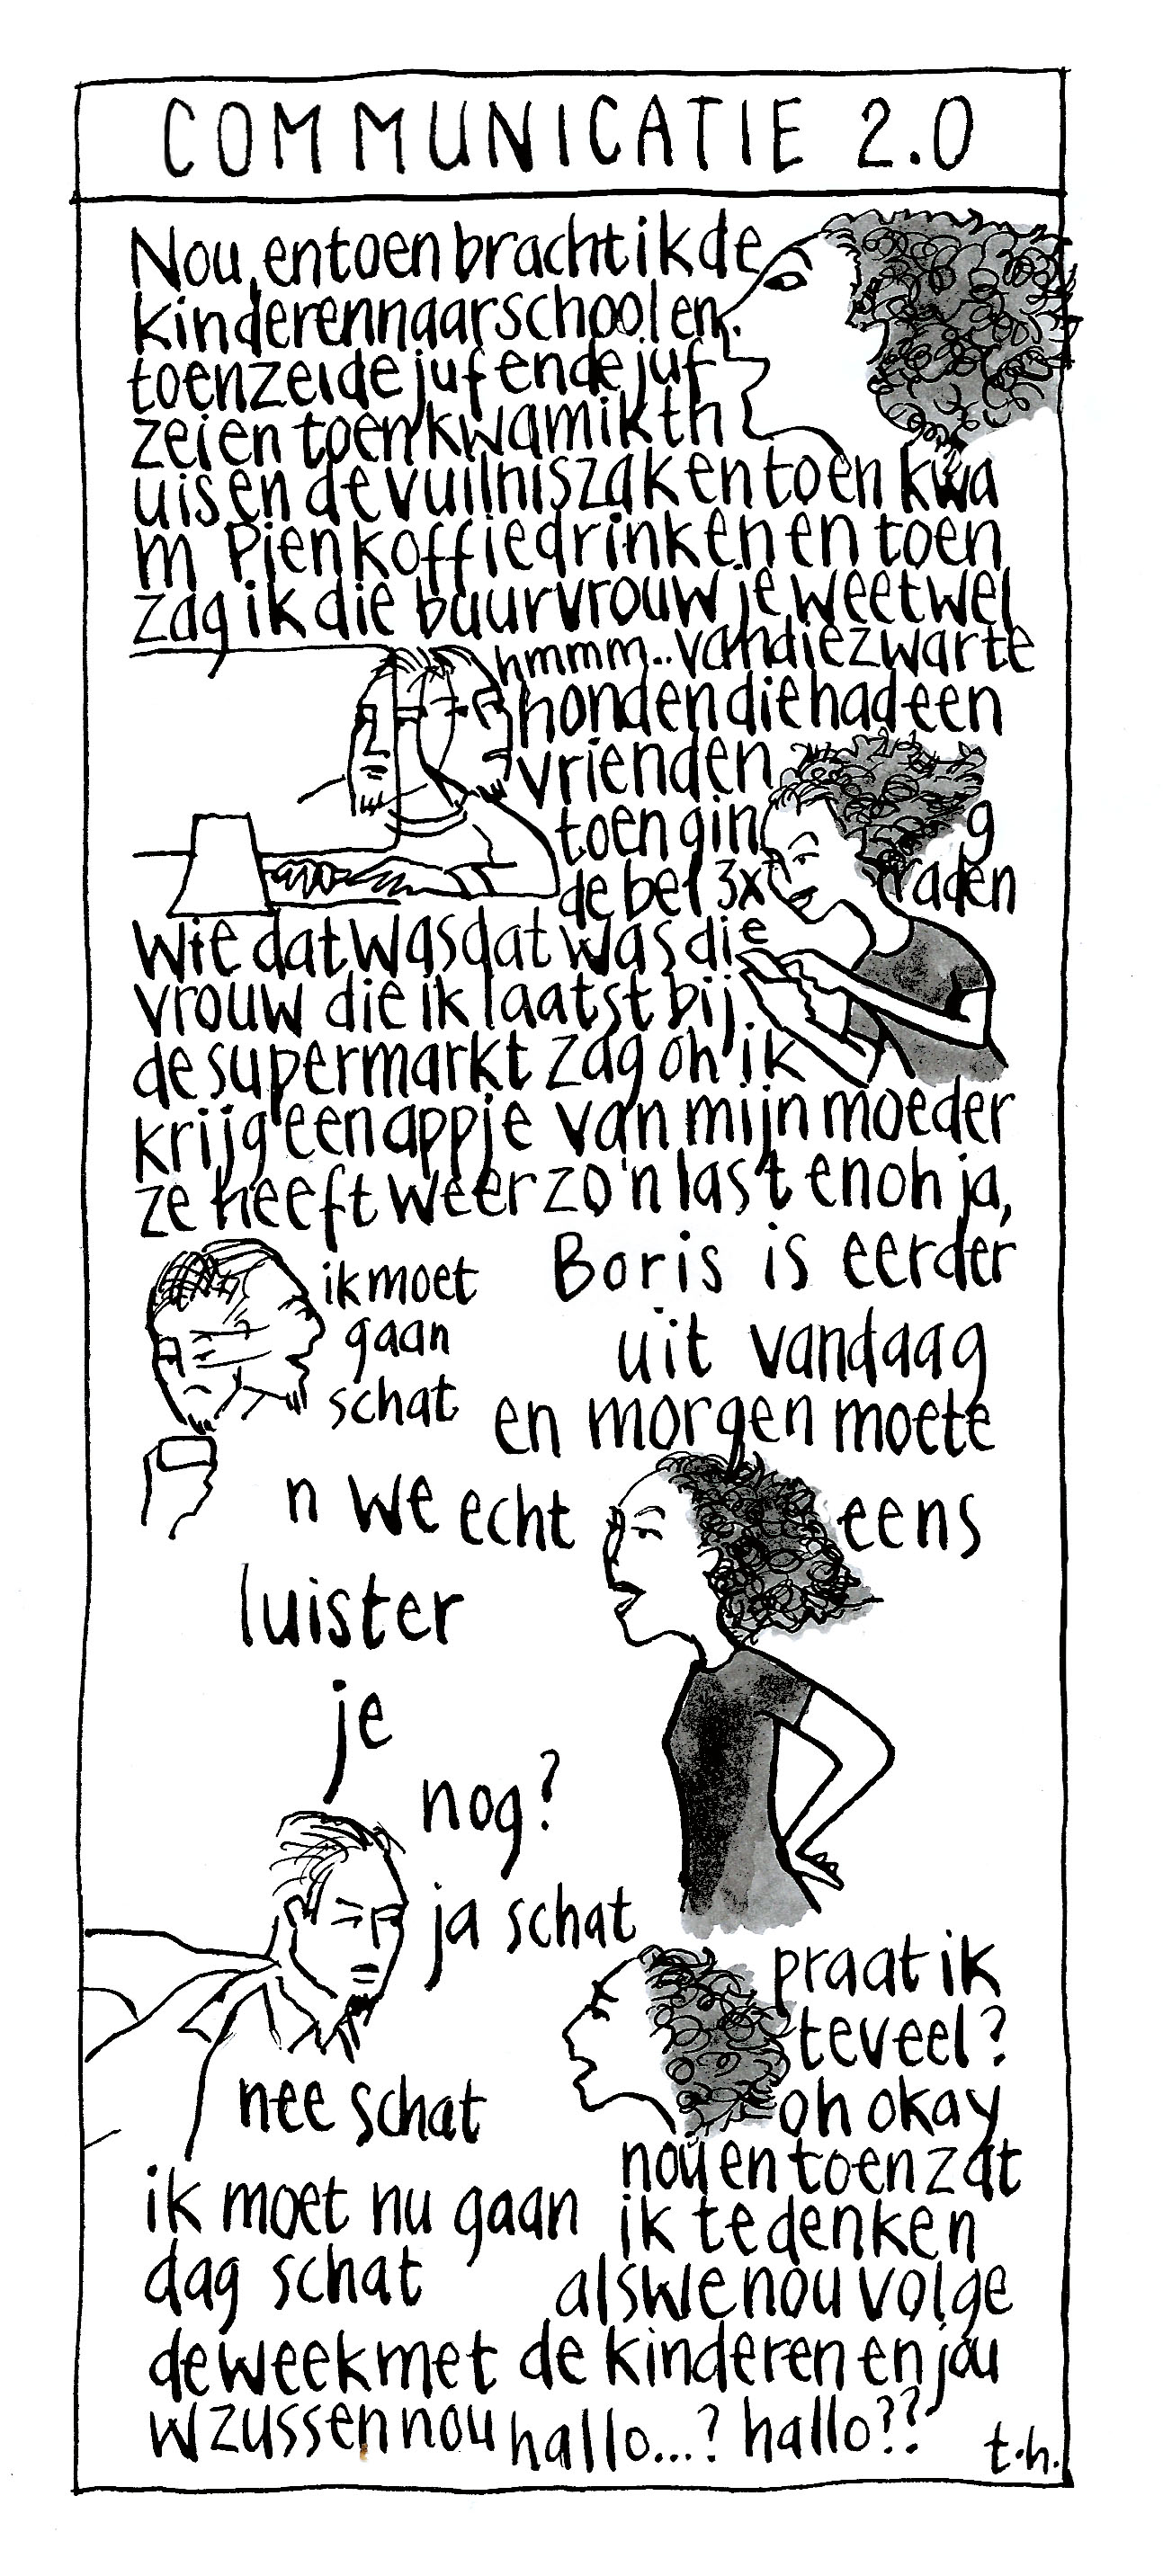 COMMUNICATIE 2.0
Nou, entoen brachtikde
kinderennaarschoolen
toenzeidejufendejuf
zeien toenkwamikth
uisen de vuilniszakentoen kwa
m Pienkoffiedrinkenen toen
zag ik die buurvrouw je weetwel
hmmm.. vandiezwarte
hondendiehadeen
vrienden
toen gin g
de bel 3x raden
wie datwasdat was die
vrouw die ik laatst bij
de supermarkt zag oh ik
krijg een appje van mijn moeder
ze heeft weer zo'n last enoh ja,
Boris is eerder
ik moet
gaan
schat
uit vandaag
en morgen moete
n we echt eens
luister
je
nog?
ja schat
praat ik
teveel?
nee schat
oh okay
nou en toen zat
ik moet nu gaan
dag schat
ik te denken
alswenou volge
deweekmet de kinderen en jou
w zussen nou hallo...? hallo??
t.h.